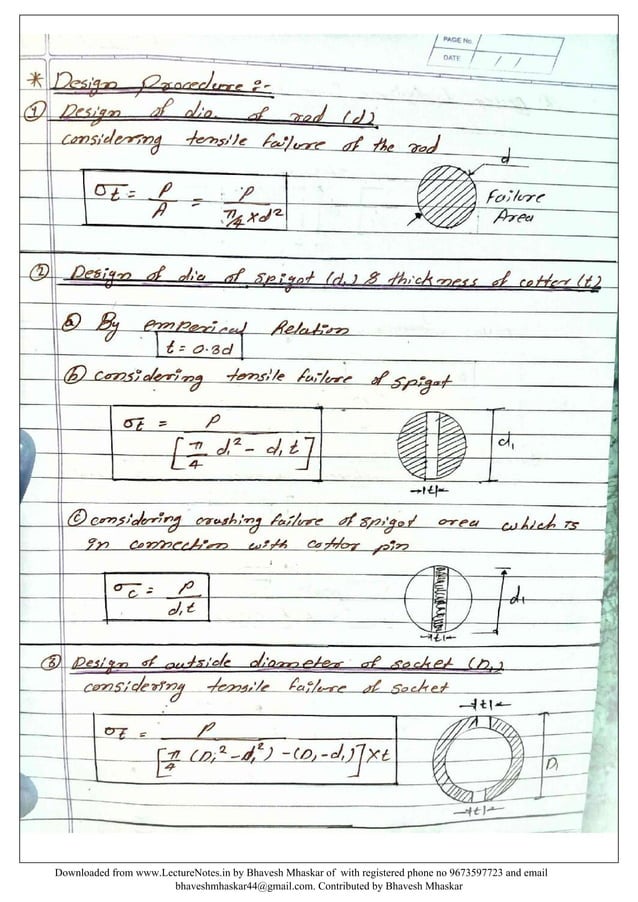 PAGE No.
DATE / /
* Design Procedure :-
① Design of dia. of rod (d).
considering tensile failure of the rod
σt = P/A = P/(π/4 × d²)
d
Failure
Area
② Design of dia of spigot (d₁) & thickness of cotter (t)
ⓐ By emperical Relation
t = 0.3d
ⓑ considering tensile failure of spigot
σt = P/[π/4 d₁² - d₁t]
d₁
t
ⓒ considering crushing failure of spigot area which is
in connection with cotter pin
σc = P/d₁t
d₁
t
③ Design of outside diameter of socket (D₁)
considering tensile failure of socket
t
σt = P/[π/4 (D₁² - d₁²) - (D₁ - d₁)] × t
D₁
t
Downloaded from www.LectureNotes.in by Bhavesh Mhaskar of with registered phone no 9673597723 and email
bhaveshmhaskar44@gmail.com. Contributed by Bhavesh Mhaskar